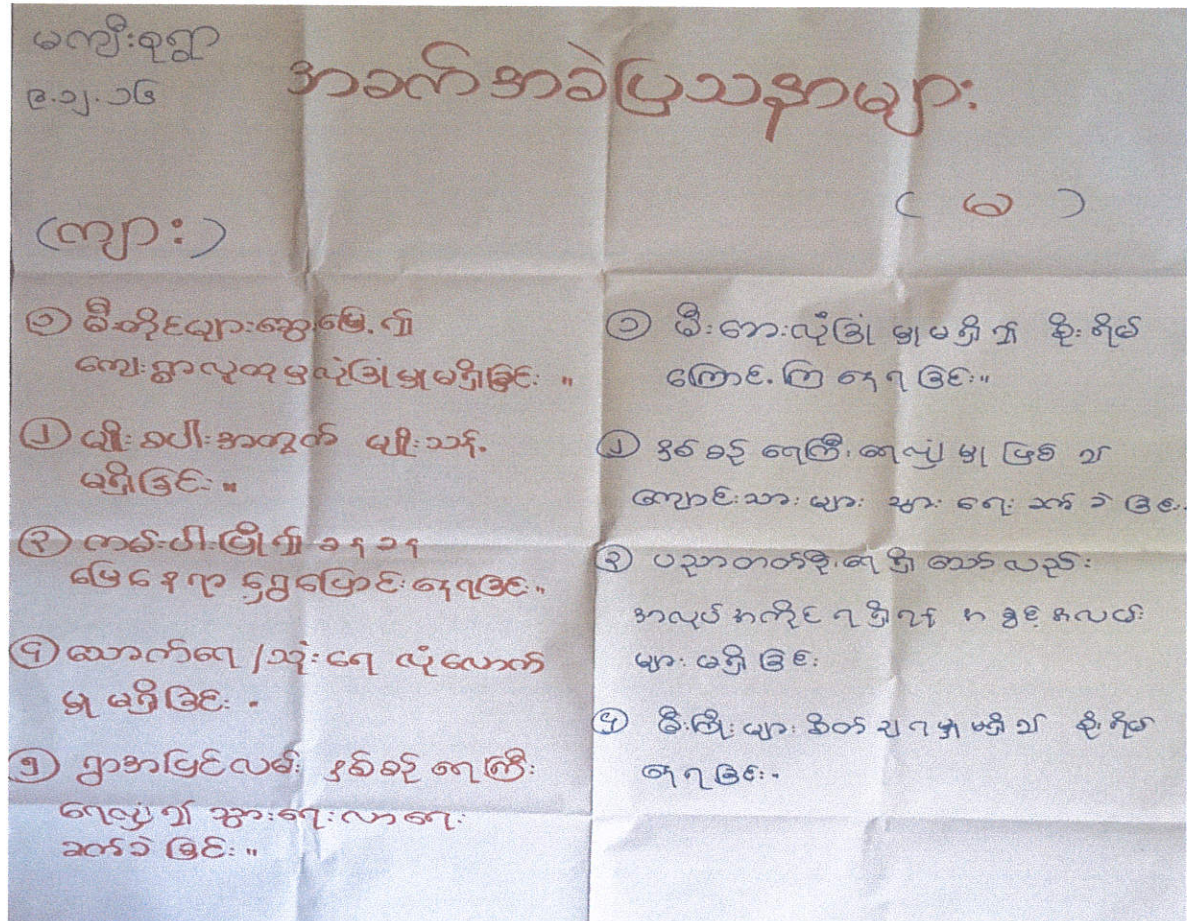 မကျီးစုရွာ
၉.၁၂.၁၆
အခက်အခဲပြသနာများ
(ကျား)
၁ မီးတိုင်များဆွေးမြေ့၍
ကျေးရွာလူထုမှလုံခြုံမှုမရှိခြင်း။
၂ မျိုးစပါးအတွက် မျိုးသန့်
မရှိခြင်း။
၃ ကမ်းပါးပြို၍ခနခန
မြေနေရာရွှေ့ပြောင်းနေရခြင်း။
၄ သောက်ရေ/သုံးရေ လုံလောက်
မှု မရှိခြင်း။
၅ ရွာအပြင်လမ်း နှစ်စဉ်ရေကြီး
ရေလျှံ၍ သွားရေးလာရေး
ခက်ခဲခြင်း။
(မ)
၁ မီးဘေးလုံခြုံမှုမရှိ၍ စိုးရိမ်
ကြောင့်ကြနေရခြင်း။
၂ နှစ်စဉ်ရေကြီးရေလျှံမှုဖြစ်၍
ကျောင်းသားများ သွားရေးခက်ခဲခြင်း
၃ ပညာတတ်စိုးရေရှိသော်လည်း
အလုပ်အကိုင်ရရှိရန် အခွင့်အလမ်း
များမရှိခြင်း
၄ မီးကြိုးများစိတ်ချရမှုမရှိ၍ စိုးရိမ်
နေရခြင်း။